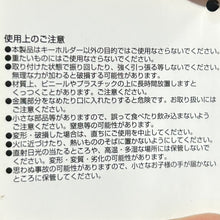 使用上のご注意
●本製品はキーホルダー以外の目的ではご使用なさらないでください。
●重たいものにはご使用なさらないでください。
●取り付けた状態で振り回したり、強く引っ張る等しないでください。
無理な力が加わると破損する可能性があります。
●材質上、ビニールやプラスチックの上に長時間放置しますと
くっつくことがありますのでご注意ください。
●金属部分をなめたり口に入れたりすると危険です。お取り扱いには
ご注意ください。
●小さな部品等がありますので、誤って食べたり飲み込まないよう
ご注意ください。窒息等の可能性があります。
●変形・破損した場合は、直ちにご使用を中止してください。
●火に近づけたり、熱いもののそばに置かないようにしてください。
●直射日光の当たるところや、高温・多湿な場所には保管しないで
ください。変形、変質、劣化の可能性があります。
●思わぬ事故の可能性がありますので、小さなお子様の手が届かない
ところに保管してください。